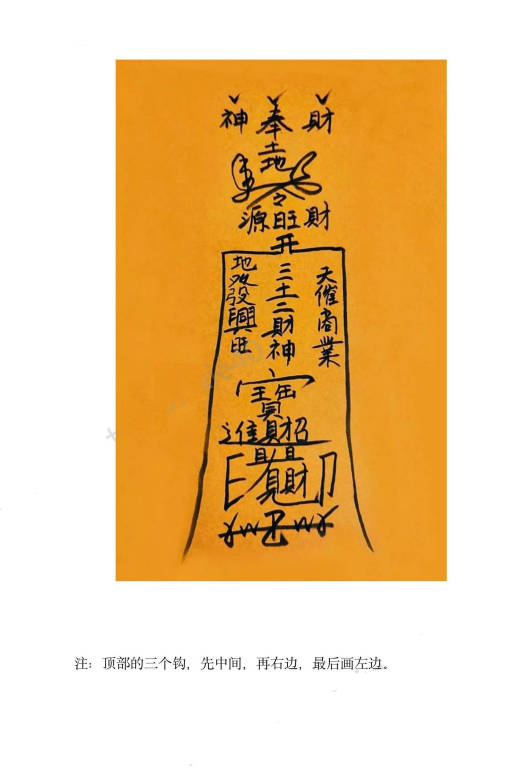 神奉財
土地
源旺財
开
天催商業
三十二財神
地發興旺
寶
進財招
財
注：顶部的三个钩，先中间，再右边，最后画左边。